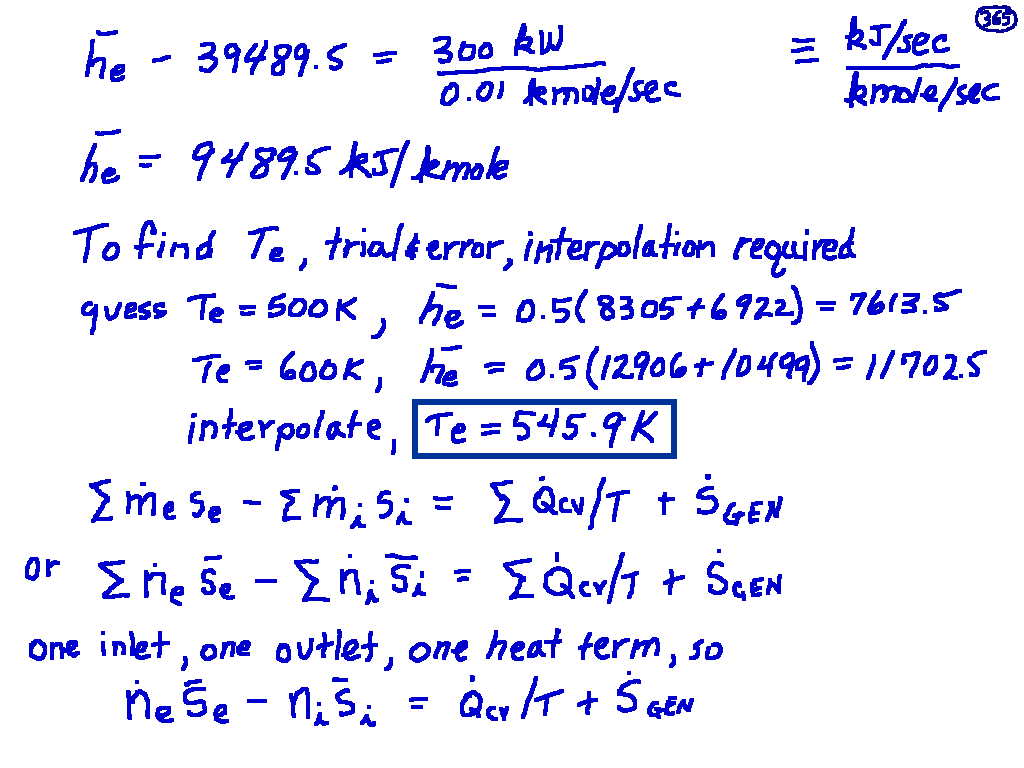 365
h̄e - 39489.5 = 300 kW / 0.01 kmole/sec ≡ kJ/sec / kmole/sec
h̄e = 9489.5 kJ/kmole
To find Te, trial & error, interpolation required
guess Te = 500K, h̄e = 0.5(8305+6922) = 7613.5
Te = 600K, h̄e = 0.5(12906+10499) = 11702.5
interpolate, Te = 545.9K
Σ ṁe se - Σ ṁi si = Σ Q̇cv/T + ṠGEN
or Σ ṅe s̄e - Σ ṅi s̄i = Σ Q̇cv/T + ṠGEN
one inlet, one outlet, one heat term, so
ṅe s̄e - ni s̄i = Q̇cv/T + ṠGEN